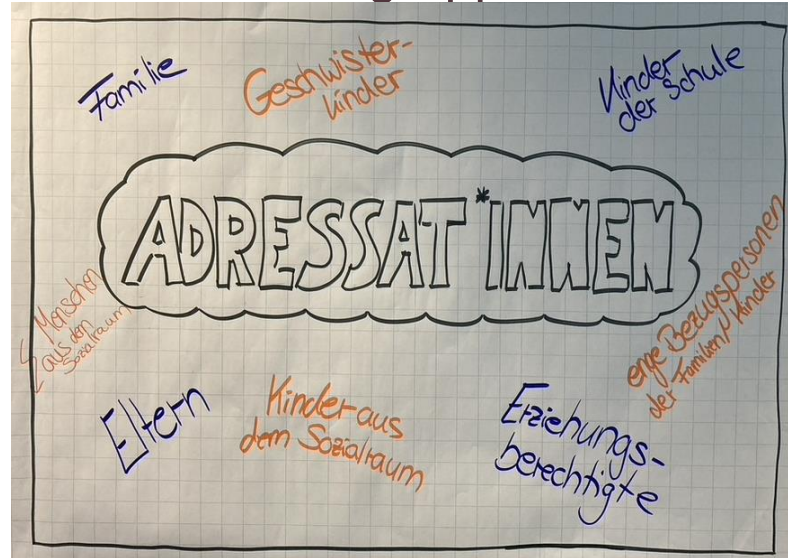 Familie
Geschwister-
kinder
Kinder
der Schule
ADRESSAT*INNEN
Menschen
aus dem
Sozialraum
enge Bezugspersonen
der Familien/Kinder
Eltern
Kinder aus
dem Sozialraum
Erziehungs-
berechtigte